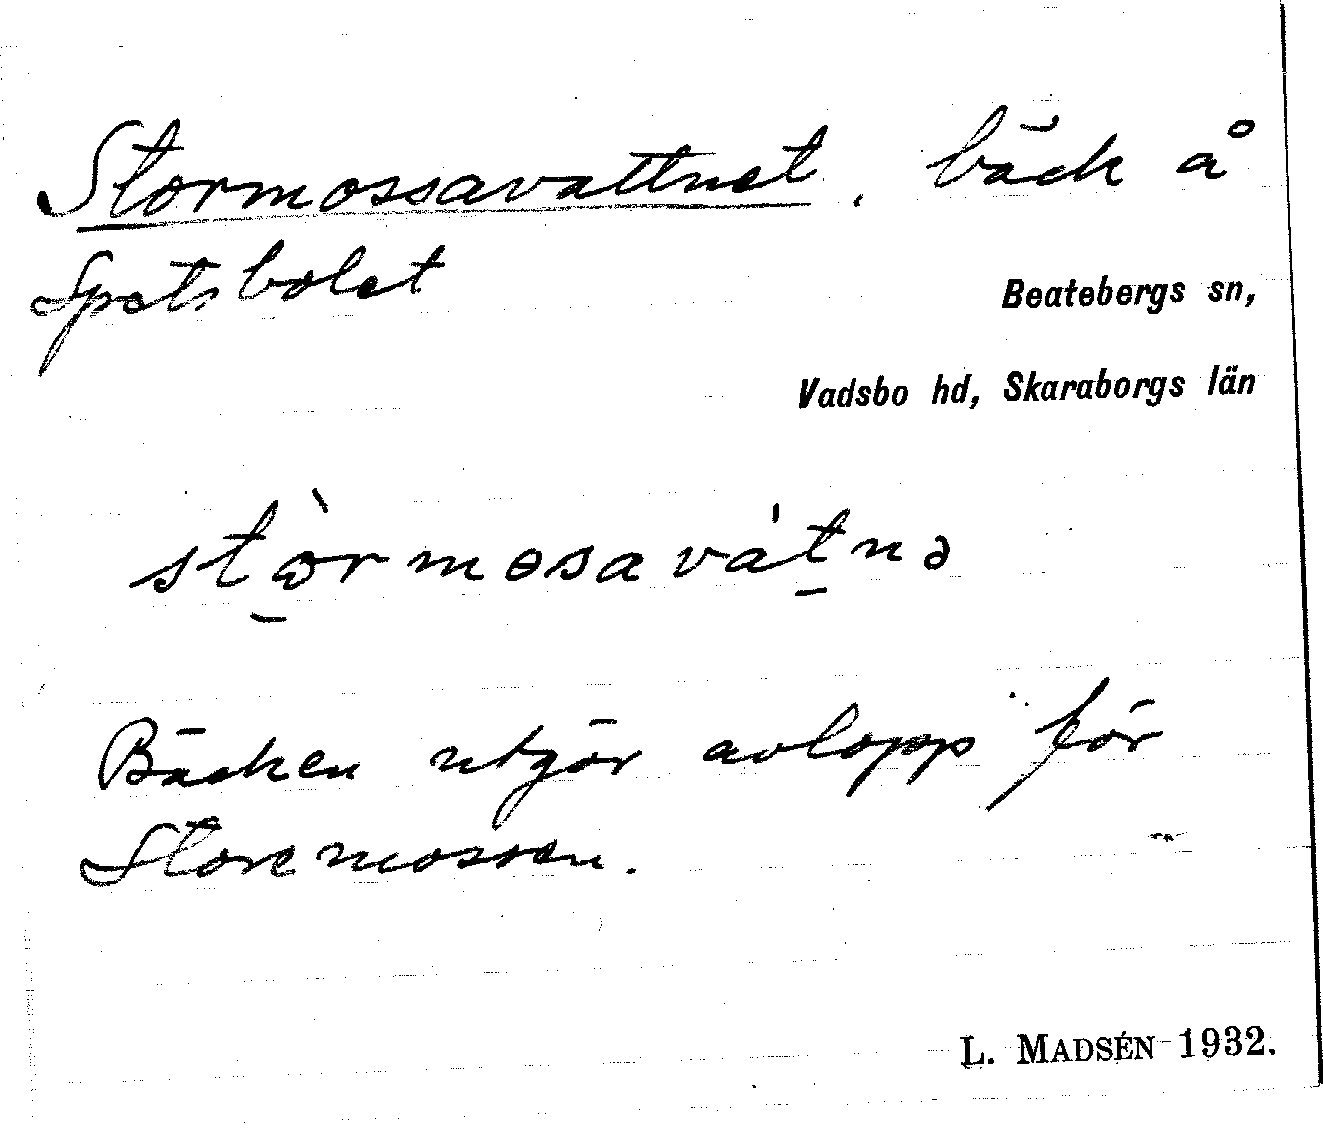 Stormossavattnet, bäck å
Spetsbolet
Beatebergs sn,
Vadsbo hd, Skaraborgs län
stò̱rmosavát̲nə
Bäcken utgör avlopp för
Storemossen.
L. MADSÉN 1932.